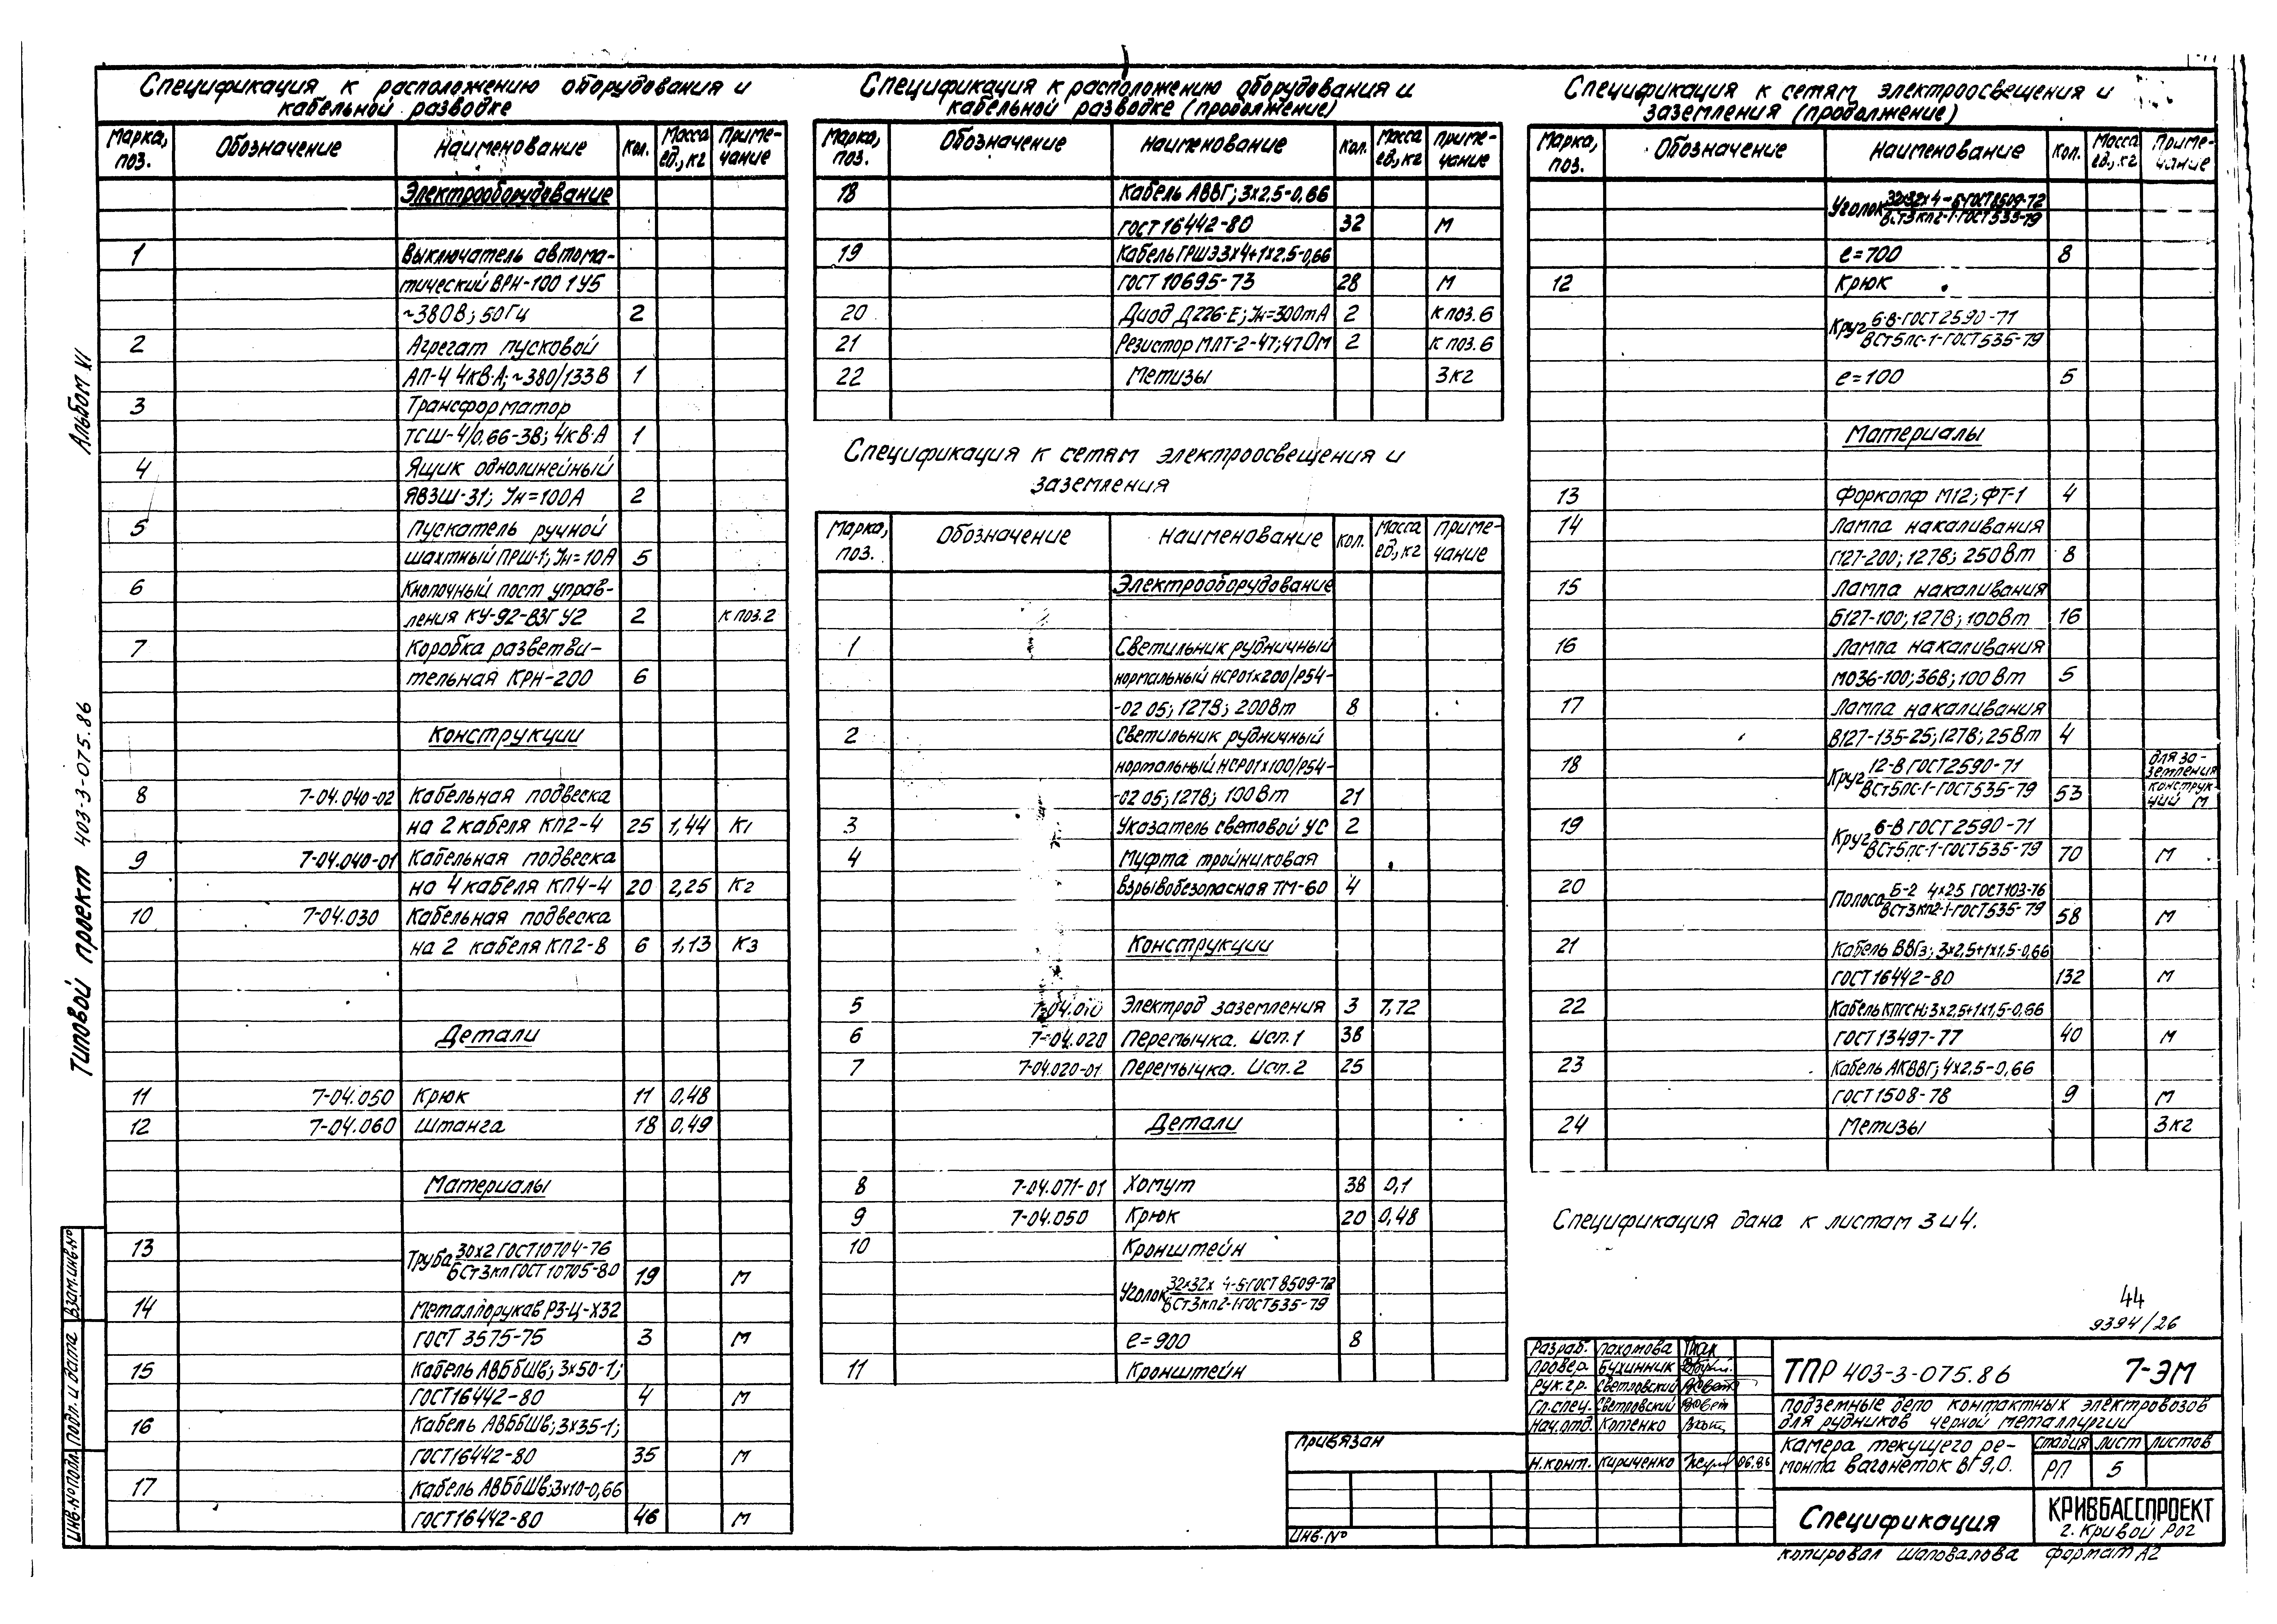 Альбом VI
Типовой проект 403-3-075.86
Спецификация к расположению оборудования и
кабельной разводке
Марка, поз. Обозначение Наименование Кол. Масса ед., кг Приме-чание
Электрооборудование
1 Выключатель автома-
тический ВРН-100 1У5
~380В; 50Гц 2
2 Агрегат пусковой
АП-4 4кВ·А; ~380/133В 1
3 Трансформатор
ТСШ-4/0,66-38; 4кВ·А 1
4 Ящик однолинейный
ЯВЗШ-31; Iн=100А 2
5 Пускатель ручной
шахтный ПРШ-1; Iн=10А 5
6 Кнопочный пост управ-
ления КУ-92-ВЗГ У2 2 к поз.2
7 Коробка разветви-
тельная КРН-200 6
Конструкции
8 7-04.040-02 Кабельная подвеска
на 2 кабеля КП2-4 25 1,44 К1
9 7-04.040-01 Кабельная подвеска
на 4 кабеля КП4-4 20 2,25 К2
10 7-04.030 Кабельная подвеска
на 2 кабеля КП2-8 6 1,13 К3
Детали
11 7-04.050 Крюк 11 0,48
12 7-04.060 Штанга 18 0,49
Материалы
13 Труба 30х2 ГОСТ 10704-76
БСт3кп ГОСТ 10705-80 19 М
14 Металлорукав РЗ-Ц-Х32
ГОСТ 3575-75 3 М
15 Кабель АВБбШв; 3х50-1;
ГОСТ16442-80 4 М
16 Кабель АВБбШв; 3х35-1;
ГОСТ16442-80 35 М
17 Кабель АВБбШв; 3х10-0,66
ГОСТ16442-80 46 М
Спецификация к расположению оборудования и
кабельной разводке (продолжение)
Марка, поз. Обозначение Наименование Кол. Масса ед., кг Приме-чание
18 Кабель АВВГ; 3х2,5-0,66
ГОСТ16442-80 32 М
19 Кабель ГРШЭ 3х4+1х2,5-0,66
ГОСТ 10695-73 28 М
20 Диод Д226-Е; Iн=300mA 2 к поз.6
21 Резистор МЛТ-2-47; 47 Ом 2 к поз.6
22 Метизы 3кг
Спецификация к сетям электроосвещения и
заземления
Марка, поз. Обозначение Наименование Кол. Масса ед., кг Приме-чание
Электрооборудование
1 Светильник рудничный
нормальный НСР01х200/Р54-
-02 05; 127В; 200Вт 8
2 Светильник рудничный
нормальный НСР01х100/Р54-
-02 05; 127В; 100Вт 21
3 Указатель световой УС 2
4 Муфта тройниковая
взрывобезопасная ТМ-60 4
Конструкции
5 7-04.010 Электрод заземления 3 7,72
6 7-04.020 Перемычка. Исп.1 38
7 7-04.020-01 Перемычка. Исп.2 25
Детали
8 7-04.071-01 Хомут 38 0,1
9 7-04.050 Крюк 20 0,48
10 Кронштейн
Уголок 32х32х4-Б-ГОСТ 8509-72
ВСт3кп2-1-ГОСТ535-79
е=900 8
11 Кронштейн
Спецификация к сетям электроосвещения и
заземления (продолжение)
Марка, поз. Обозначение Наименование Кол. Масса ед., кг Приме-чание
Уголок 32х32х4-Б-ГОСТ8509-72
ВСт3кп2-1-ГОСТ535-79
е=700 8
12 Крюк
Круг 6-В-ГОСТ2590-71
ВСт5пс-1-ГОСТ535-79
е=100 5
Материалы
13 Форкопф М12; ФТ-1 4
14 Лампа накаливания
Г127-200; 127В; 250Вт 8
15 Лампа накаливания
Б127-100; 127В; 100Вт 16
16 Лампа накаливания
МО36-100; 36В; 100Вт 5
17 Лампа накаливания
В127-135-25; 127В; 25Вт 4
18 Круг 12-В ГОСТ2590-71
ВСт5пс-1-ГОСТ535-79 53 для за-земления конструк-ций М
19 Круг 6-В ГОСТ2590-71
ВСт5пс-1-ГОСТ535-79 70 М
20 Полоса Б-2 4х25 ГОСТ103-76
ВСт3кп2-1-ГОСТ535-79 58 М
21 Кабель ВВГз; 3х2,5+1х1,5-0,66
ГОСТ16442-80 132 М
22 Кабель КПГСН; 3х2,5+1х1,5-0,66
ГОСТ13497-77 40 М
23 Кабель АКВВГ; 4х2,5-0,66
ГОСТ1508-78 9 М
24 Метизы 3кг
Спецификация дана к листам 3 и 4.
44
9394/26
Разраб. Пахомова
Провер. Бухинник
Рук.гр. Светловский
Гл.спец. Светловский
Нач.отд. Котенко
Н.конт. Кириченко 06.86
ТПР 403-3-075.86 7-ЭМ
Подземные депо контактных электровозов
для рудников черной металлургии
Камера текущего ре-
монта вагонеток ВГ9,0.
Стадия Лист Листов
РП 5
Спецификация
КРИВБАССПРОЕКТ
г. Кривой Рог
Привязан
Инв.№
Копировал Шаповалова Формат А2
Взам.инв.№
Подп. и дата
Инв.№ подл.